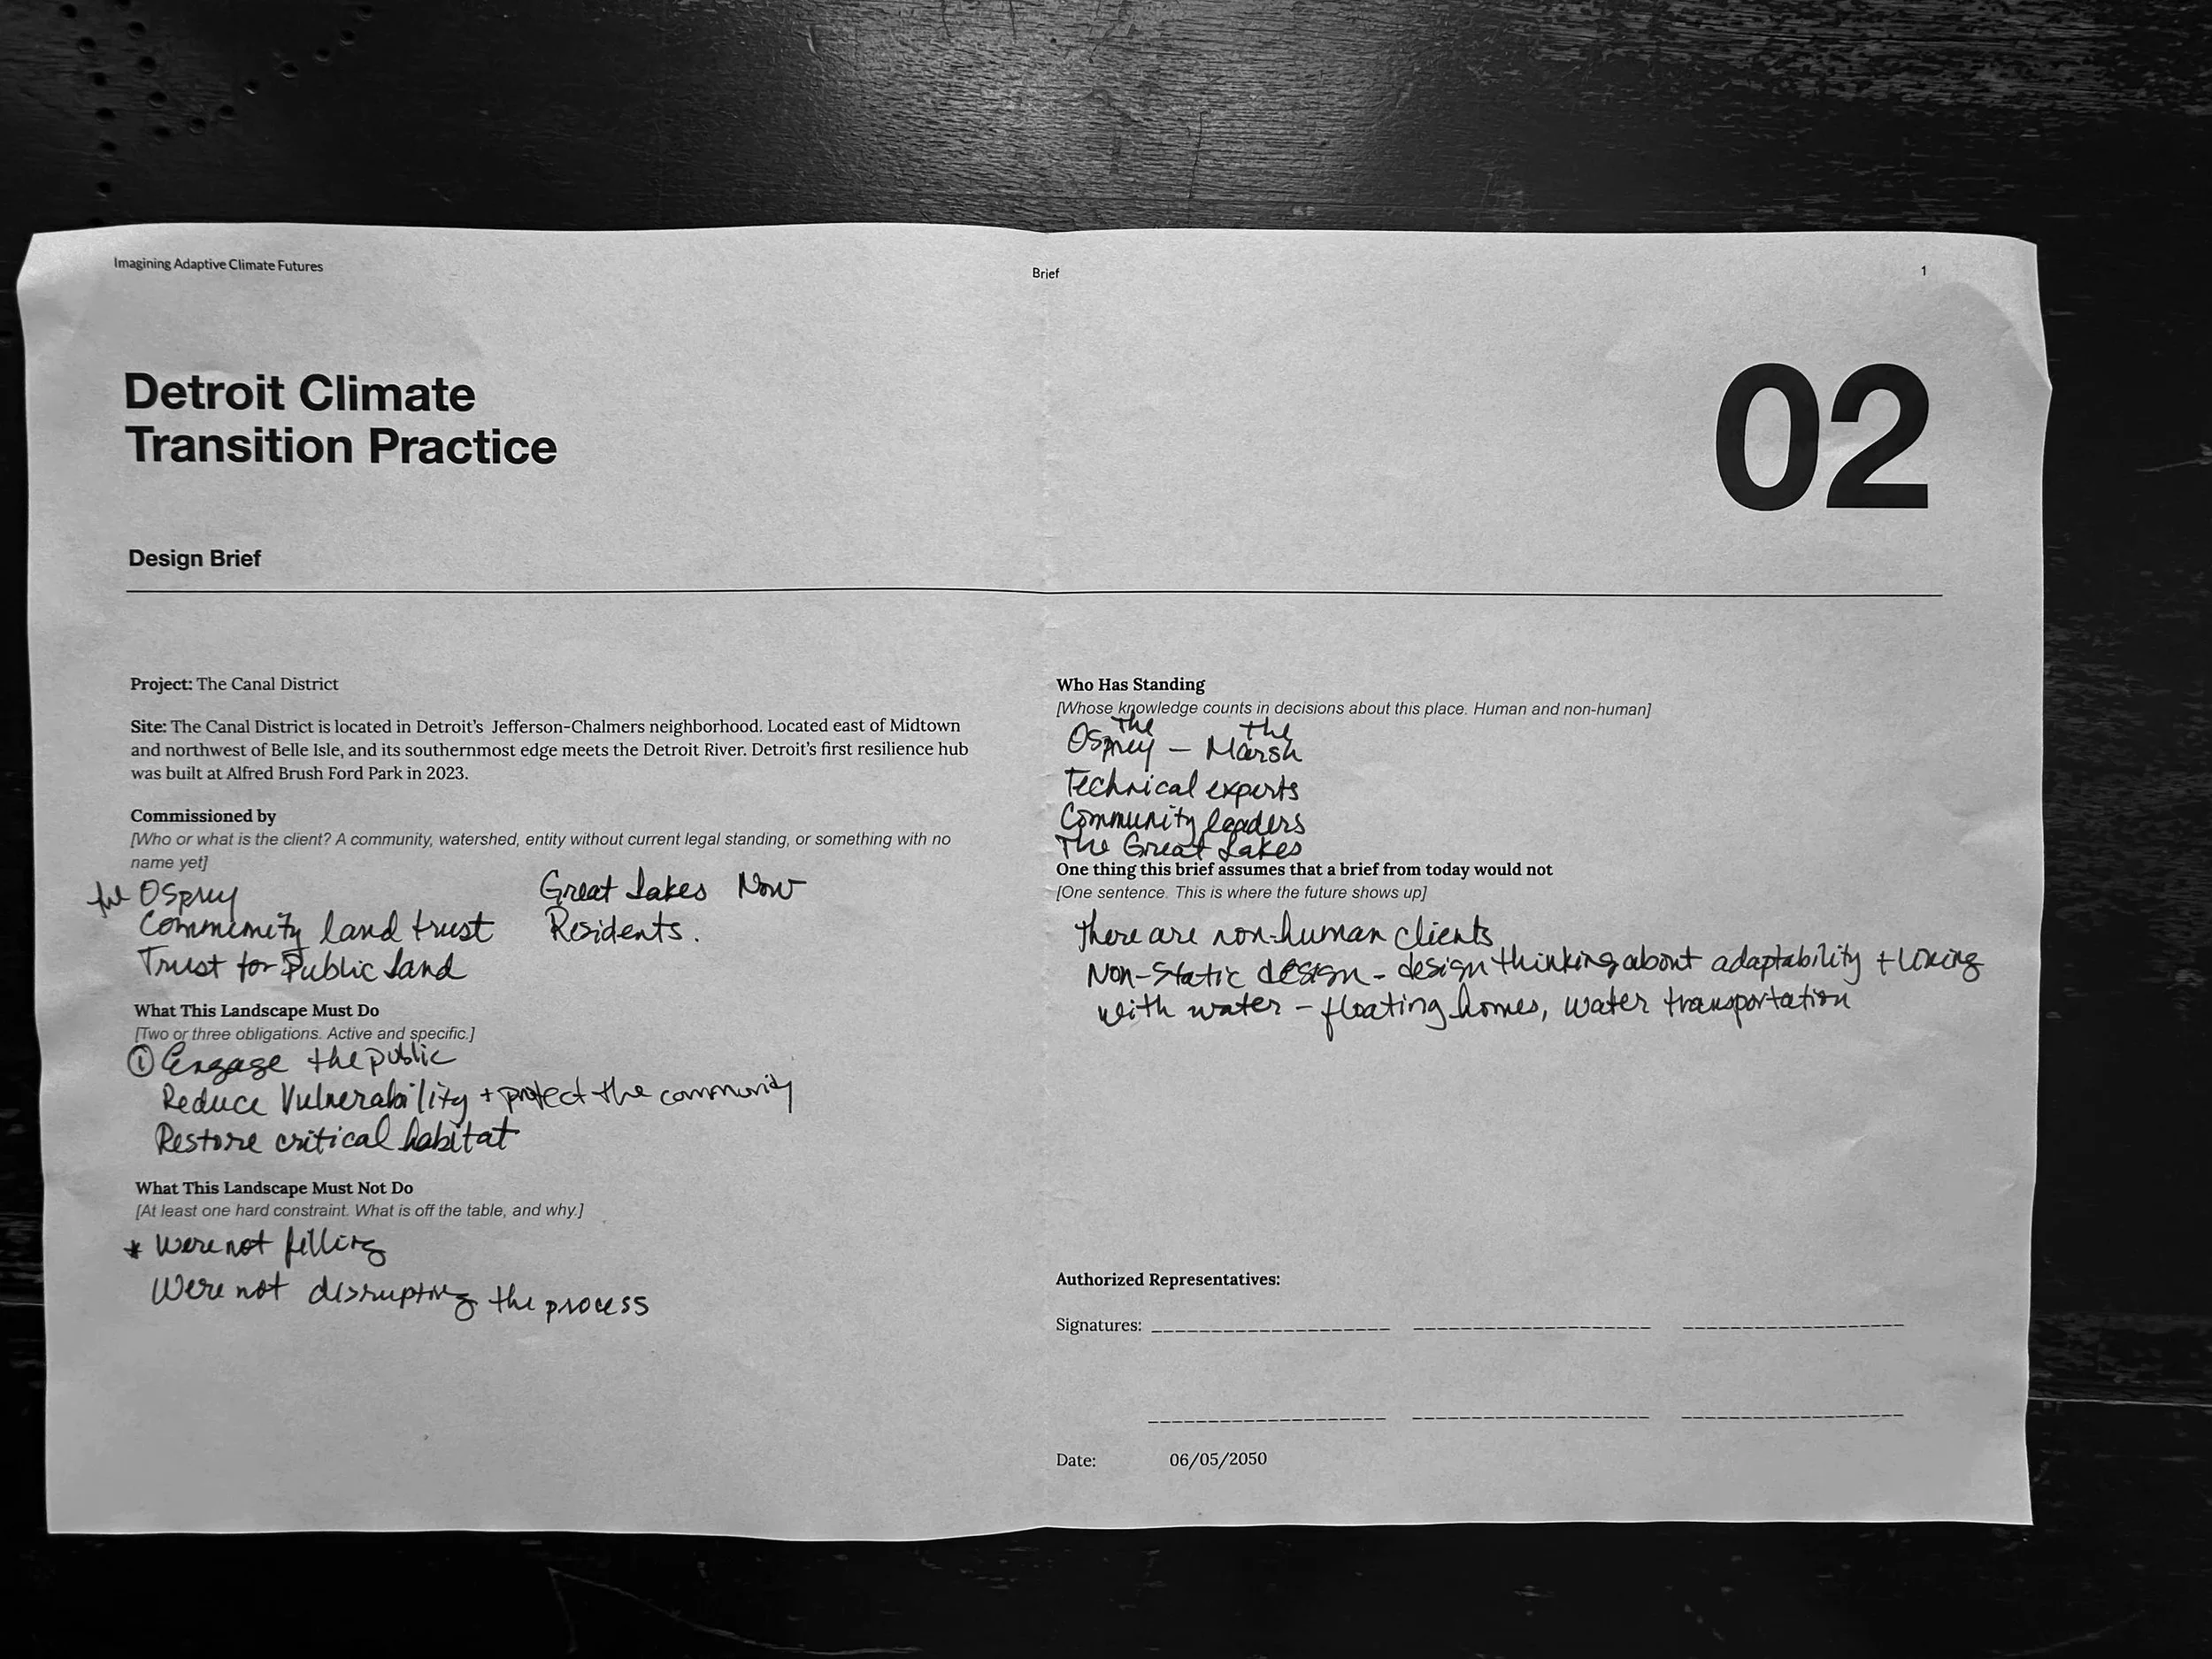 Imagining Adaptive Climate Futures
Brief
1
Detroit Climate
Transition Practice
02
Design Brief
Project: The Canal District
Site: The Canal District is located in Detroit's Jefferson-Chalmers neighborhood. Located east of Midtown
and northwest of Belle Isle, and its southernmost edge meets the Detroit River. Detroit's first resilience hub
was built at Alfred Brush Ford Park in 2023.
Commissioned by
[Who or what is the client? A community, watershed, entity without current legal standing, or something with no
name yet]
the Osprey
Community land trust
Trust for Public Land
Great Lakes Now
Residents.
What This Landscape Must Do
[Two or three obligations. Active and specific.]
① Engage the public
Reduce Vulnerability + protect the community
Restore critical habitat
What This Landscape Must Not Do
[At least one hard constraint. What is off the table, and why.]
* Were not filling
Were not disrupting the process
Who Has Standing
[Whose knowledge counts in decisions about this place. Human and non-human]
The Osprey – The Marsh
Technical experts
Community leaders
The Great Lakes
One thing this brief assumes that a brief from today would not
[One sentence. This is where the future shows up]
There are non-human clients
Non-Static design - design thinking about adaptability + living
with water – floating homes, water transportation
Authorized Representatives:
Signatures:
Date: 06/05/2050